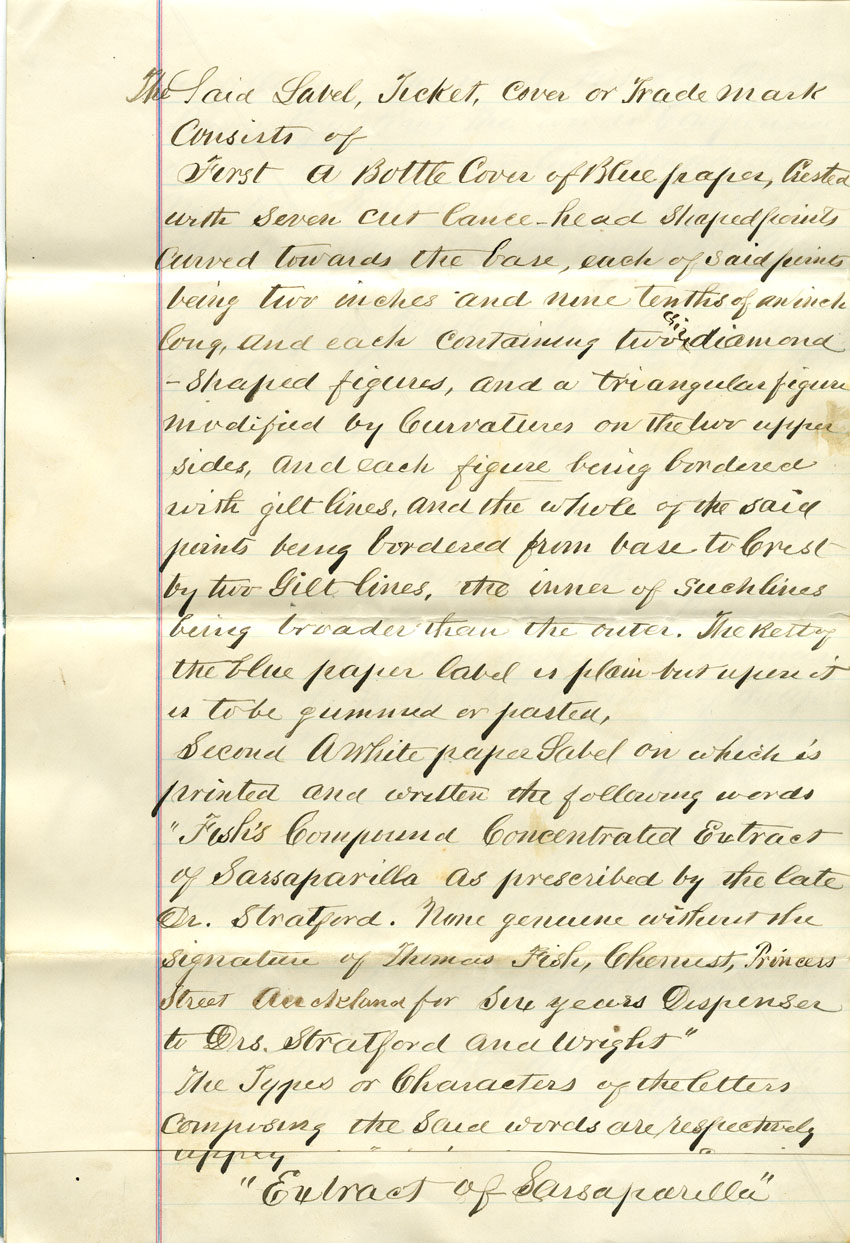 The Said Label, Ticket, Cover or Trade Mark
Consists of
First A Bottle Cover of Blue paper, Crested
with Seven Cut lance-head Shaped points
Curved towards the base, each of said points
being two inches and nine tenths of an inch
long, and each Containing two diamond
-Shaped figures, and a triangular figure
modified by Curvatures on the two upper
sides, and each figure being bordered
with gilt lines, and the whole of the said
points being bordered from base to Crest
by two Gilt lines, the inner of such lines
being broader than the outer. The
the blue paper label is plain but upon it
is to be gummed or pasted,
Second A White paper Label on which is
printed and written the following words
"Fish's Compound Concentrated Extract
of Sarsaparilla as prescribed by the late
Dr. Stratford. None genuine without the
signature of Thomas Fish, Chemist, Princess
Street Auckland for Six years Dispenser
to Drs. Stratford and Wright"
The Types or Characters of the letters
Composing the Said words are respectively
"Extract of Sarsaparilla"